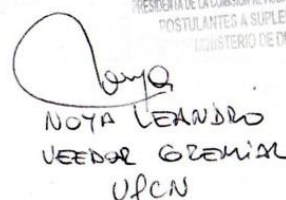 PRESIDENTA DE LA COMISIÓN
POSTULANTES A SUPLE
MINISTERIO DE DE
NOYA LEANDRO
VEEDOR GREMIAL
UPCN